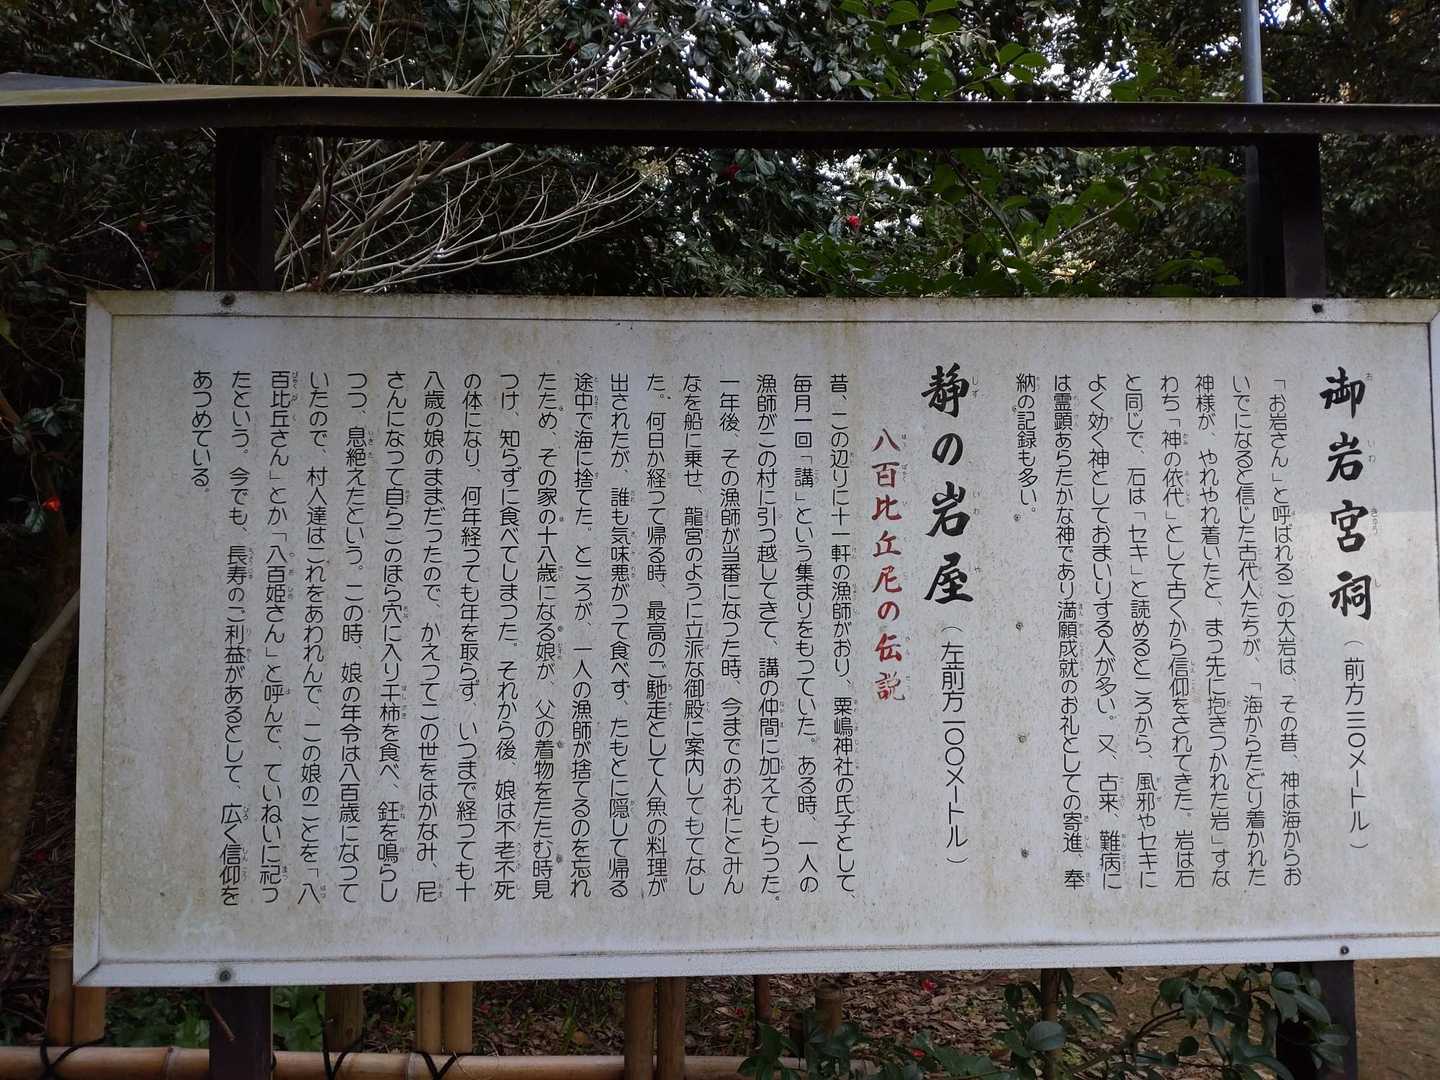 御岩宮祠（前方三〇メートル）
「お岩さん」と呼ばれるこの大岩は、その昔、神は海からお
いでになると信じた古代人たちが、「海からたどり着かれた
神様が、やれやれ着いたと、まっ先に抱きつかれた岩」すな
わち「神の依代」として古くから信仰をされてきた。岩は石
と同じで、石は「セキ」と読めるところから、風邪やセキに
よく効く神としておまいりする人が多い。又、古来、難病に
は霊顕あらたかな神であり満願成就のお礼としての寄進、奉
納の記録も多い。
静の岩屋（左前方一〇〇メートル）
八百比丘尼の伝説
昔、この辺りに十一軒の漁師がおり、粟嶋神社の氏子として、
毎月一回「講」という集まりをもっていた。ある時、一人の
漁師がこの村に引っ越してきて、講の仲間に加えてもらった。
一年後、その漁師が当番になった時、今までのお礼にとみん
なを船に乗せ、龍宮のように立派な御殿に案内してもてなし
た。何日か経つて帰る時、最高のご馳走として人魚の料理が
出されたが、誰も気味悪がって食べず、たもとに隠して帰る
途中で海に捨てた。ところが、一人の漁師が捨てるのを忘れ
たため、その家の十八歳になる娘が、父の着物をたたむ時見
つけ、知らずに食べてしまった。それから後、娘は不老不死
の体になり、何年経っても年を取らず、いつまで経つても十
八歳の娘のままだったので、かえってこの世をはかなみ、尼
さんになって自らこのほら穴に入り干柿を食べ、鉦を鳴らし
つつ、息絶えたという。この時、娘の年令は八百歳になって
いたので、村人達はこれをあわれんで、この娘のことを「八
百比丘さん」とか「八百姫さん」と呼んで、ていねいに祀っ
たという。今でも、長寿のご利益があるとして、広く信仰を
あつめている。